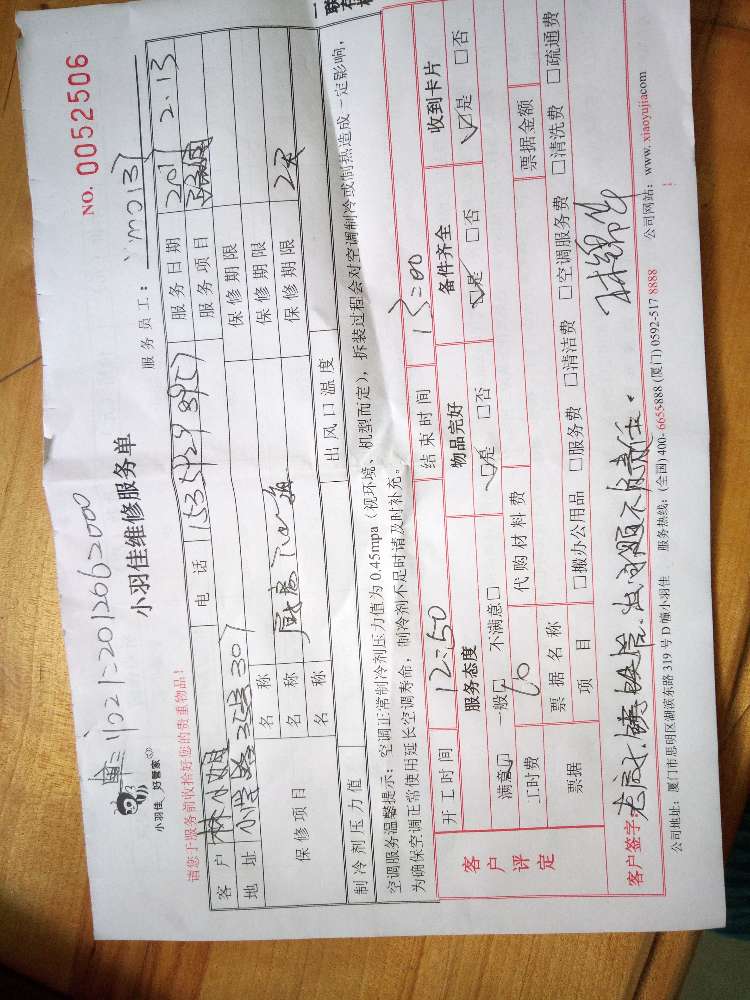 NO. 0052506
单号021=2012062000
小羽佳 好管家
小羽佳维修服务单
服务员工:
请您于服务前收拾好您的贵重物品!
客户 林小姐 电话 服务日期 2.13
地址 服务项目
保修项目
名称 保修期限
名称 厨房 保修期限
名称 保修期限 2天
制冷剂压力值 出风口温度
空调服务温馨提示:空调正常制冷剂压力值为 0.45mpa(视环境、机型而定),拆装过程会对空调制冷或制热造成一定影响,
为确保空调正常使用延长空调寿命,制冷剂不足时请及时补充。
客户评定
开工时间 12:50 结束时间 13:00
服务态度 物品完好 备件齐全 收到卡片
满意□ 一般□ 不满意□ □是 □否 □是 □否 □是 □否
工时费 60 代购材料费 票据金额
票据 票据名称
项目 □搬办公用品 □服务费 □清洁费 □空调服务费 □清洗费 □疏通费
客户签字:
公司地址:厦门市思明区湖滨东路 319 号 D 幢小羽佳 服务热线:(全国) 400- 6655-888 (厦门) 0592-517 8888 公司网站:www. xiaoyujiacom